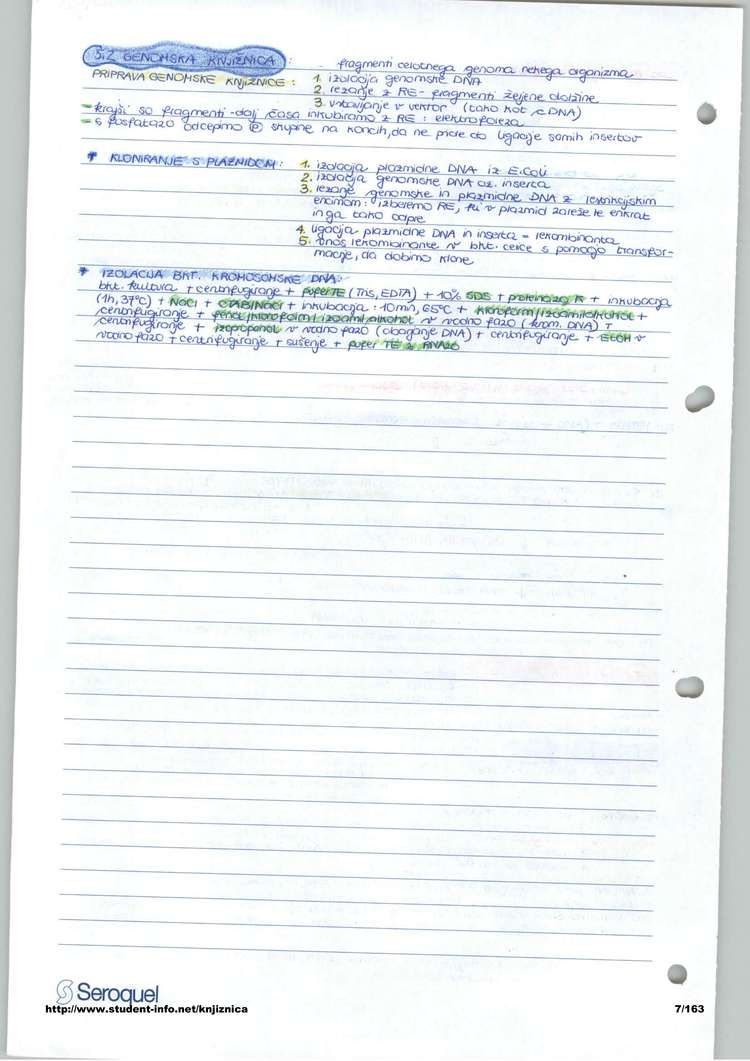 5.2 GENOMSKA KNJIŽNICA : fragmenti celotnega genoma nekega organizma
PRIPRAVA GENOMSKE KNJIŽNICE : 1. izolacija genomske DNA
2. rezanje z RE - fragmenti željene dolžine
3. vstavljanje v vektor (tako kot cDNA)
- krajši so fragmenti - dalj časa inkubiramo z RE : elektroforeza
- s fosfatazo odcepimo P skupine na koncih, da ne pride do ligacije samih insertov
* KLONIRANJE S PLAZMIDOM : 1. izolacija plazmidne DNA iz E.coli
2. izolacija genomske DNA oz. inserta
3. rezanje genomske in plazmidne DNA z restrikcijskim
encimom : izberemo RE, ki v plazmid zareže le enkrat
in ga tako odpre
4. ligacija plazmidne DNA in inserta = rekombinanta
5. vnos rekombinante v bkt. celice s pomočjo transfor-
macije, da dobimo klone
* IZOLACIJA BKT. KROMOSOMSKE DNA:
bkt. kultura + centrifugiranje + pufer TE (Tris, EDTA) + 10% SDS + proteinaza K + inkubacija
(1h, 37°C) + NaCl + CTAB/NaCl + inkubacija : 10min, 65°C + kloroform/izoamilalkohol +
centrifugiranje + fenol/kloroform/izoamilalkohol v vodno fazo (krom. DNA) +
centrifugiranje + izopropanol v vodno fazo (obarjanje DNA) + centrifugiranje + EtOH v
vodno fazo + centrifugiranje + sušenje + pufer TE z RNAzo
Seroquel
http://www.student-info.net/knjiznica 7/163